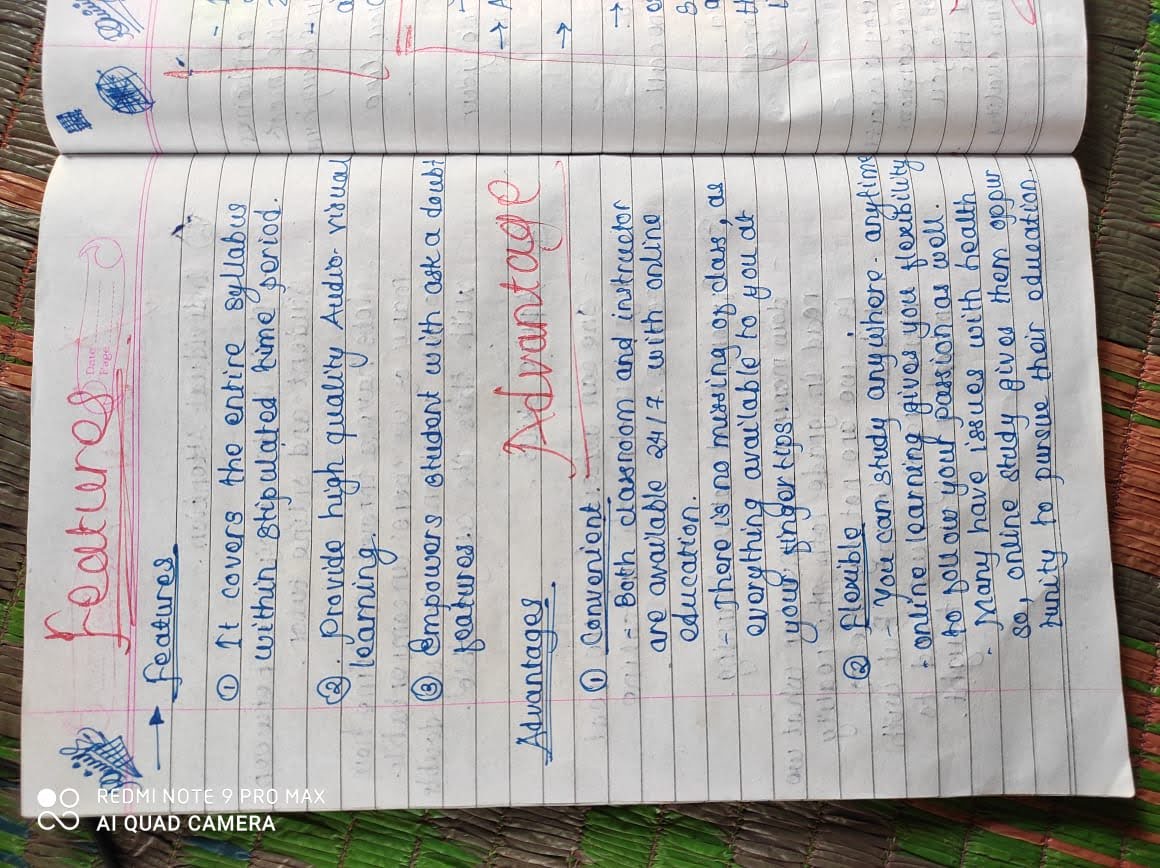 Features
Date
Page
→ Features
① It covers the entire syllabus
within stipulated time period.
②. Provide high quality Audio-visual
learning.
③ Empowers student with ask a doubt
features.
Advantage
Advantages
① Convenient.
- Both classroom and instructor
are available 24/7 with online
education.
- There is no missing of class, as
everything available to you at
your fingertips.
② Flexible
- You can study anywhere- anytime
- online learning gives you flexibility
to follow your passion as well.
- Many have issues with health
so, online study gives them oppur
tunity to pursue their education.
REDMI NOTE 9 PRO MAX
AI QUAD CAMERA